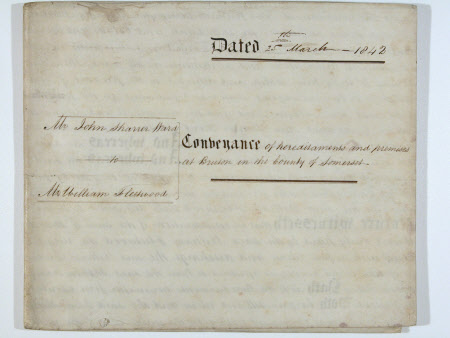 Dated 25th March 1842
Mr John Sharrer Ward
to
Mr William Fleetwood
Conveyance of hereditaments and premises
at Bruton in the County of Somerset